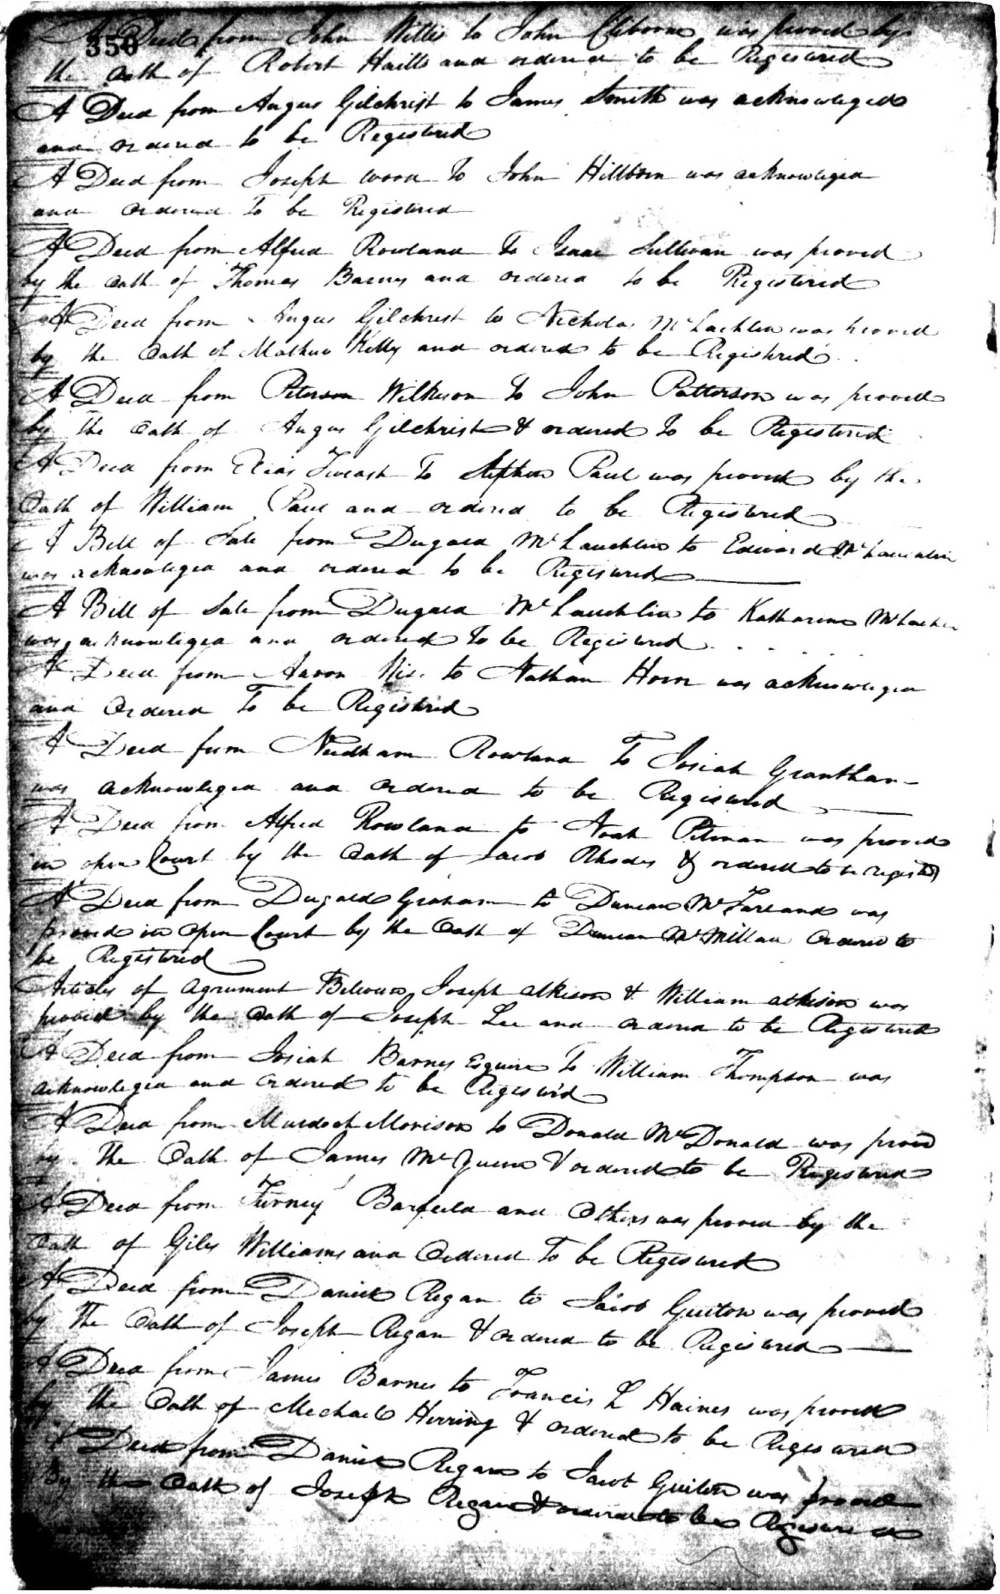 350
A Deed from John Willis to John Cliborne was proved by
the Oath of Robert Haills and ordered to be Registered
A Deed from Angus Gilchrist to James Smith was acknowleged
and ordered to be Registered
A Deed from Joseph Wood to John Hillborn was acknowleged
and Ordered To be Registered
A Deed from Alfred Rowland to Isaac Sullivan was proved
by the Oath of Thomas Barnes and ordered to be Registered
A Deed from Angus Gilchrist to Nicholas McLachlin was proved
by the Oath of Mathew Kelly and ordered to be Registred
A Deed from Peterson Wilkerson To John Patterson was proved
by The Oath of Angus Gilchrist & ordered To be Registered
A Deed from Elias to Stephen Paul was proved by the
Oath of William Paul and ordered to be Registered
A Bill of Sale from Dugald McLauchlin to Edward McLauchlin
was acknowleged and ordered to be Registered
A Bill of Sale from Dugald McLauchlin to Katharine
was acknowleged and ordered To be Registered
A Deed from Aaron to Nathan Horn was acknowleged
and Ordered To be Registred
A Deed from Needham Rowland To Josiah Granthan
was acknowleged and Ordered to be Registered
A Deed from Alfred Rowland to Noah Pitman was proved
in open Court by the Oath of Jacob Rhodes & ordered to be
A Deed from Dugald Graham to Duncan McFarland was
proved in Open Court by the Oath of Duncan McMillan Ordered to
be Registered
Articles of Agrument Between Joseph Atkison & William atkison was
proved by the Oath of Joseph Lee and Ordered to be Registered
A Deed from Josiah Barnes Esquire To William Thompson was
acknowleged and Ordered to be
A Deed from Murdoch Morison to Donald McDonald was proved
by The Oath of James McQueen & ordered to be Registered
A Deed from Turney Barfield and Others was proved by the
Oath of Giles Williams and Ordered To be Registered
A Deed from Daniel Regan to Jacob Guiton was proved
by The Oath of Joseph Regan & ordered to be Registered
A Deed from James Barnes to Francis L Haines was proved
by The Oath of Mechael Herring & ordered to be Registered
A Deed from Daniel Regan to Jacob Guiton was proved
By the Oath of Joseph Regan & ordered to be Registered